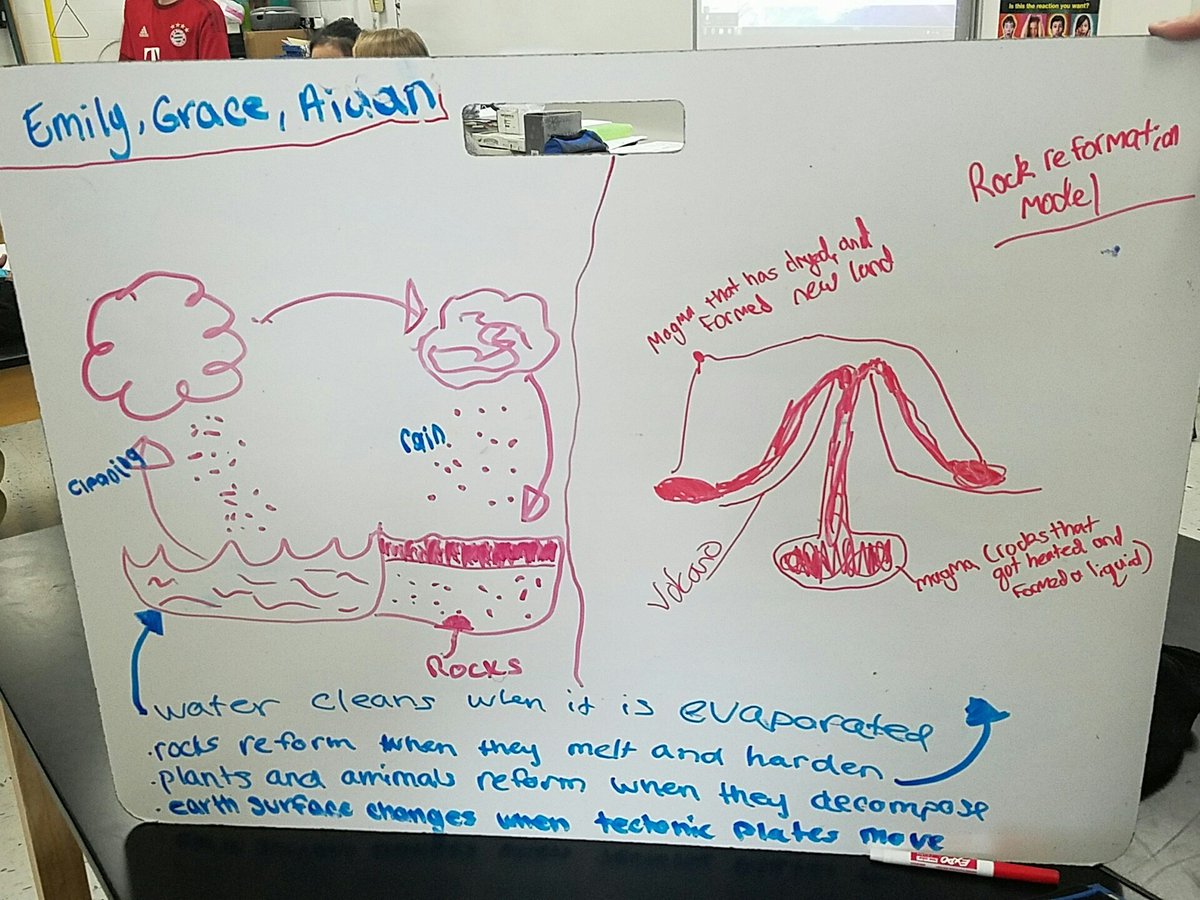 Is this the reaction you want?
Emily, Grace, Aidan
Rock reformation
model
Magma that has dryed, and
formed new land
cleaning
rain
Volcano
magma (rocks that
got heated and
formed a liquid)
Rocks
water cleans when it is evaporated
.rocks reform when they melt and harden
.plants and animals reform when they decompose
.earth surface changes when tectonic plates move
EXPO